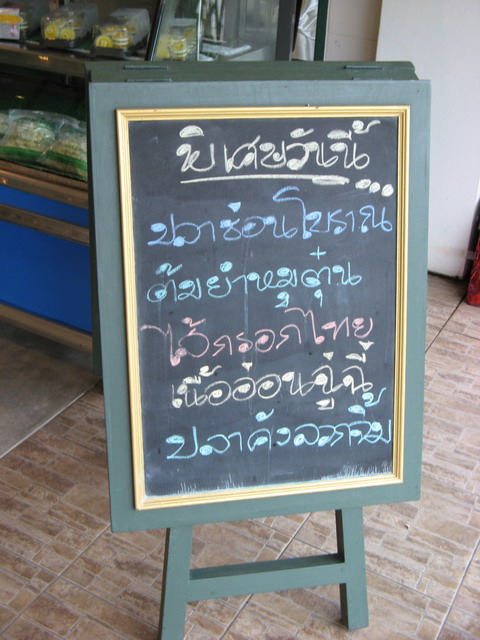 พิเศษวันนี้...
ปลาช่อนโบราณ
ต้มยำหมูตุ๋น
ไส้กรอกไทย
เนื้ออ่อนฉู่ฉี่
ปลาคังลวกจิ้ม